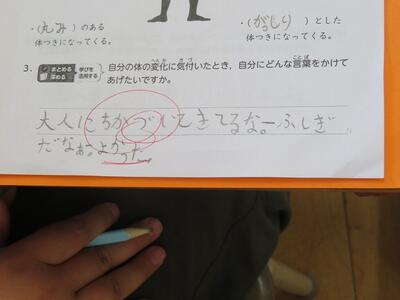 ・(丸み)のある
体つきになってくる。
・(がっしり)とした
体つきになってくる。
3. まとめる 深める 学びを活用する 自分の体の変化に気付いたとき，自分にどんな言葉をかけて
あげたいですか。
大人にちかづいてきてるなー。ふしぎ
だなぁ。よかった。